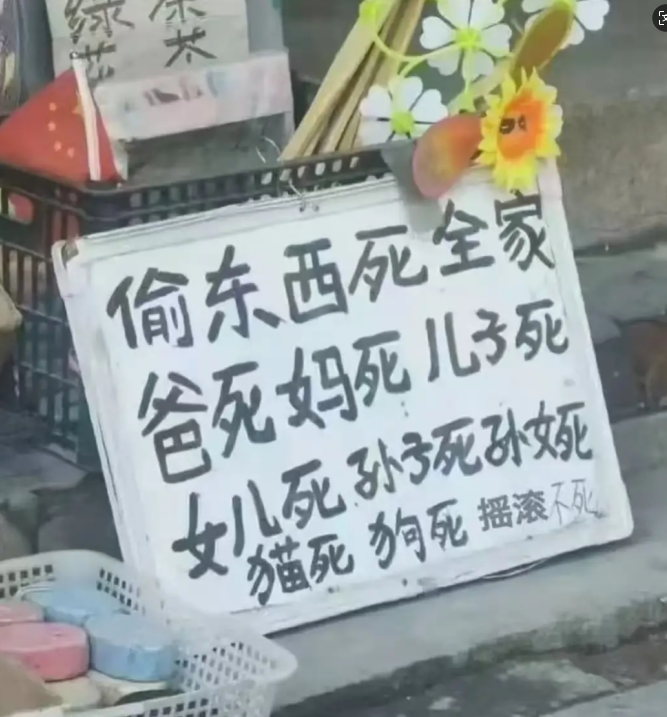 绿茶
偷东西死全家
爸死妈死儿子死
女儿死孙子死孙女死
猫死 狗死 摇滚不死